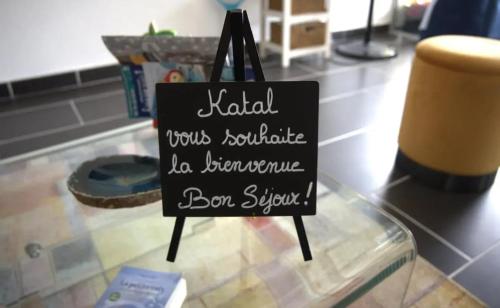 Katal
vous souhaite
la bienvenue
Bon Séjour !